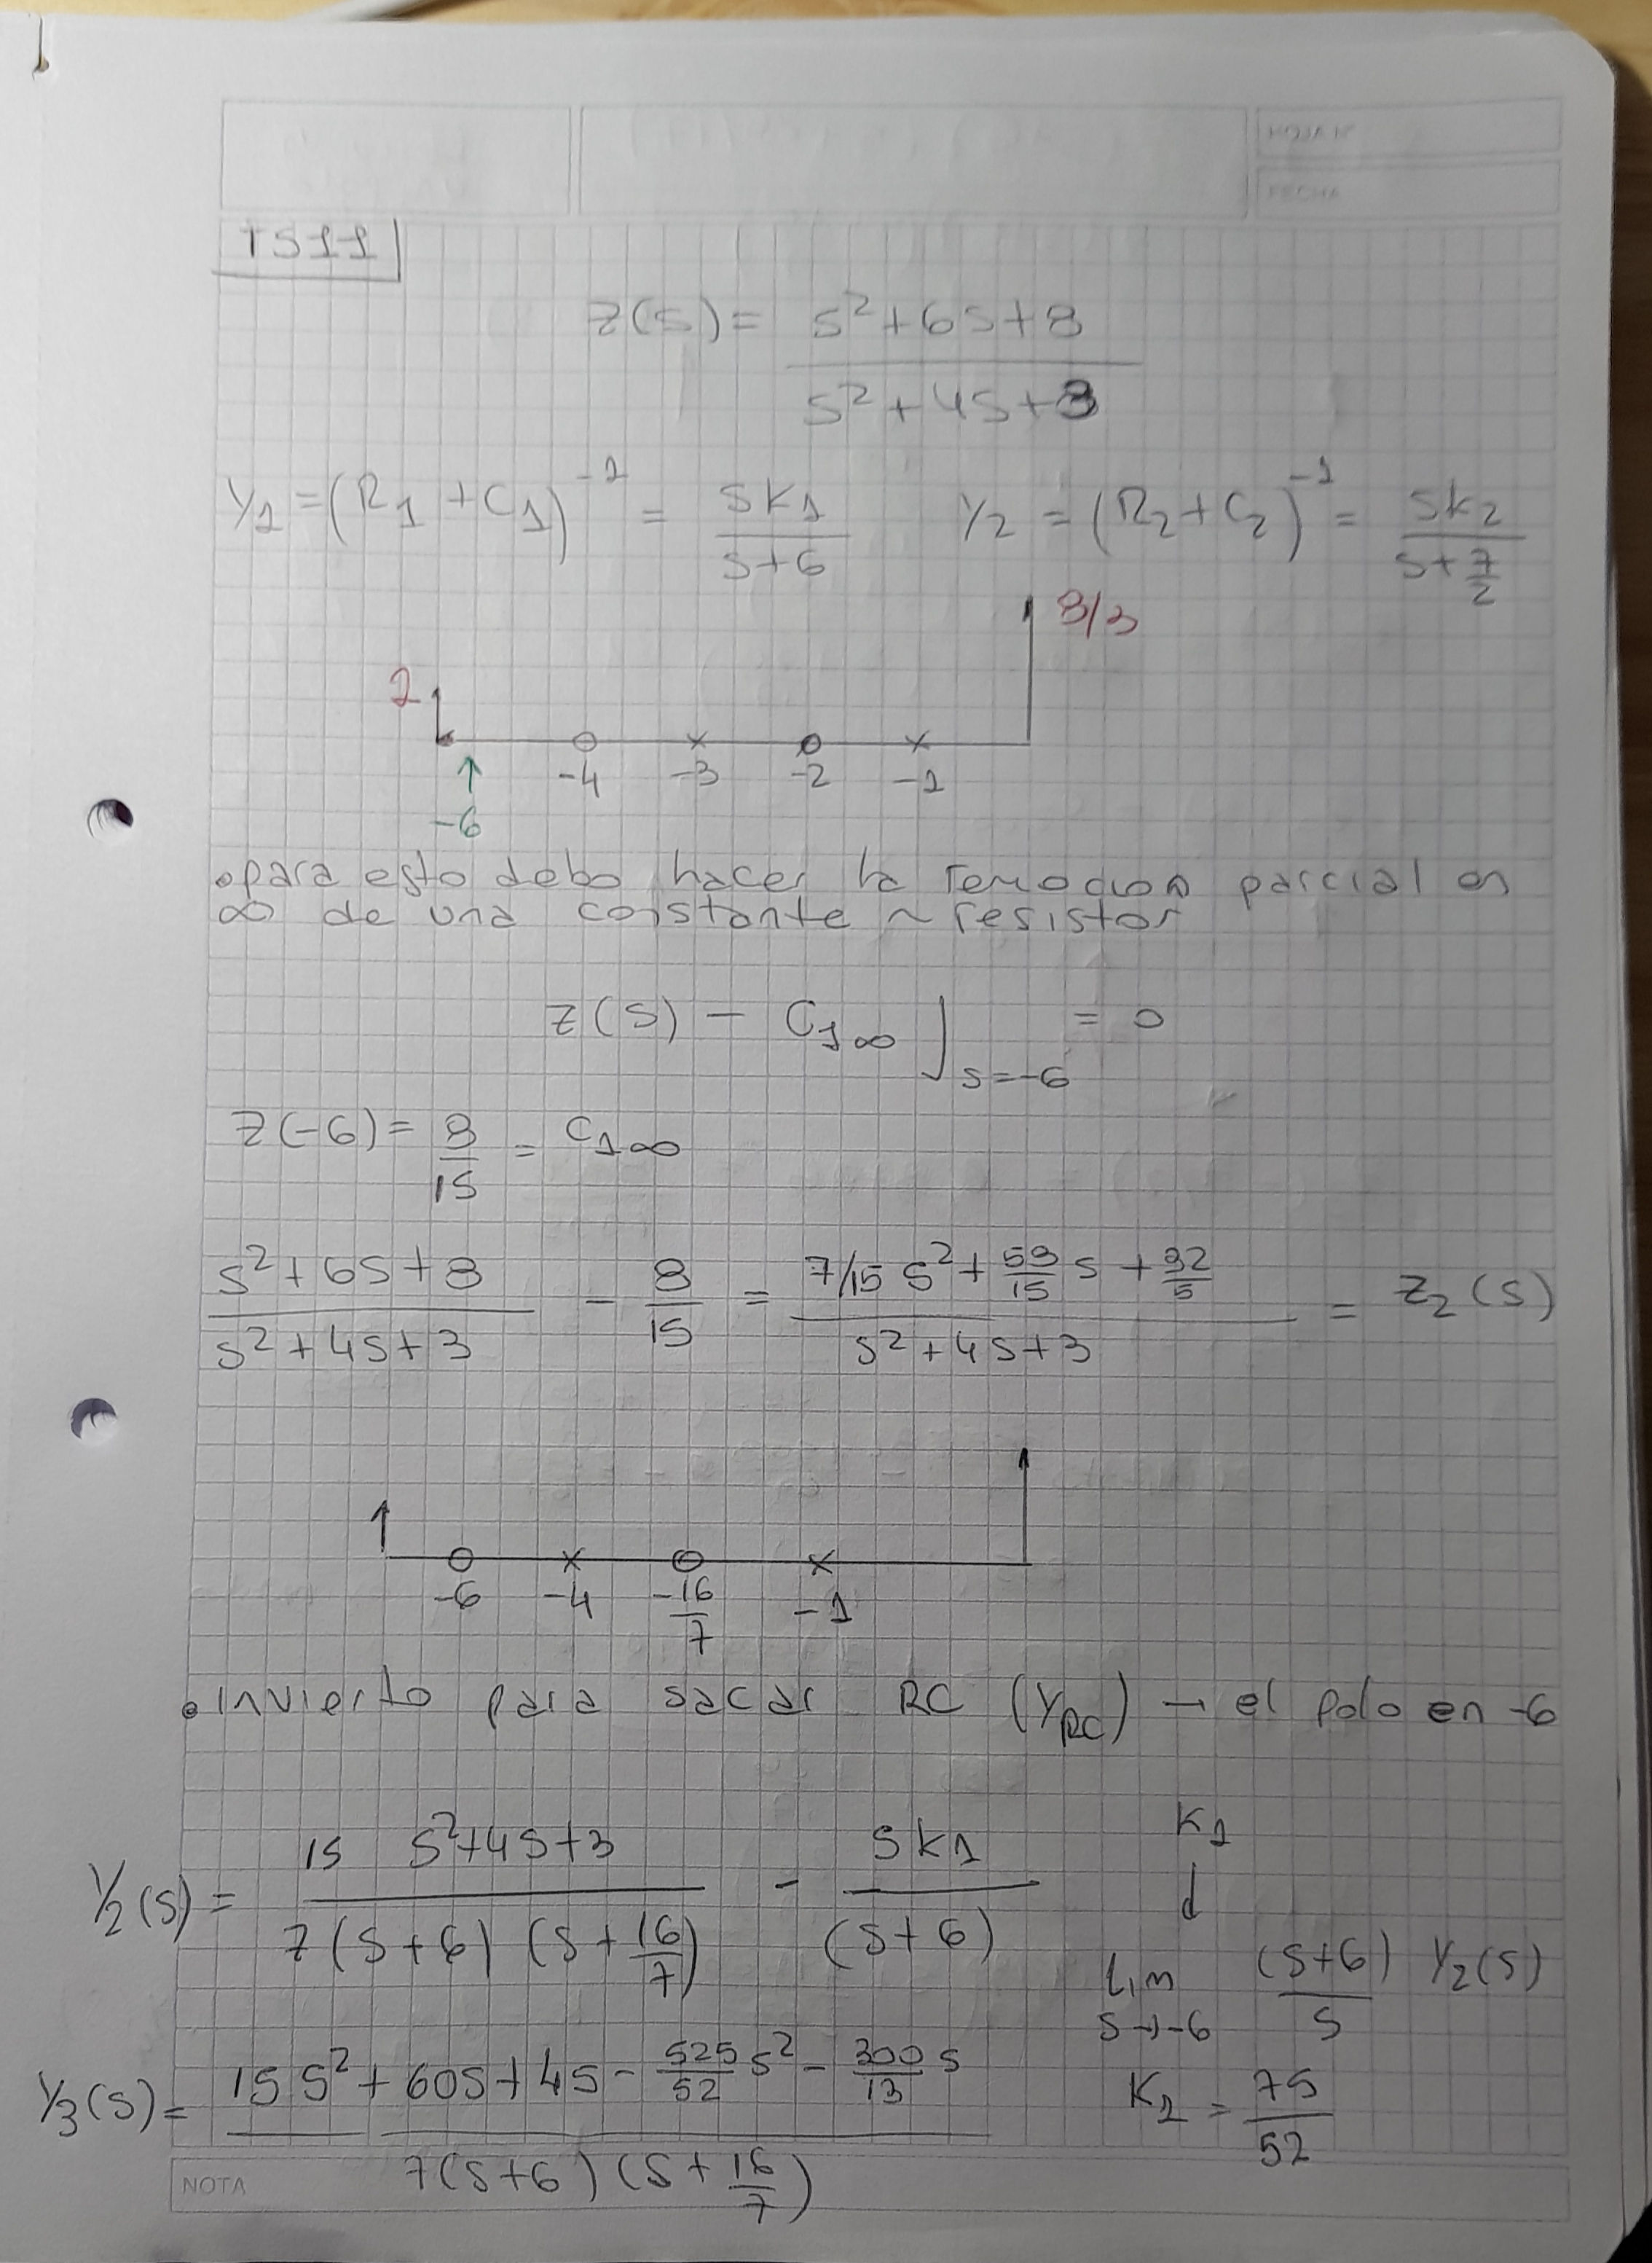 HOJA Nº
FECHA
TS11
Z(S) = (S²+6S+8) / (S²+4S+3)
Y1 = (R1 + C1)^-1 = SK1 / (S+6)    Y2 = (R2 + C2)^-1 = SK2 / (S + 7/2)
8/3
1
-4 -3 -2 -1
-6
• para esto debo hacer la remocion parcial en
∞ de una constante ~ resistor
Z(S) - C1∞ ]s=-6 = 0
Z(-6) = 8/15 = C1∞
(S²+6S+8) / (S²+4S+3) - 8/15 = (7/15 S² + 58/15 S + 32/5) / (S²+4S+3) = Z2(S)
-6 -4 -16/7 -1
• invierto para sacar RC (Y_RC) → el polo en -6
Y2(S) = 15 S²+4S+3 / 7(S+6)(S+16/7) - SK1 / (S+6)
K1
↓
Lim S→-6 (S+6)/S Y2(S)
Y3(S) = (15S² + 60S + 45 - 525/52 S² - 300/13 S) / 7(S+6)(S+16/7)
K1 = 75/52
NOTA